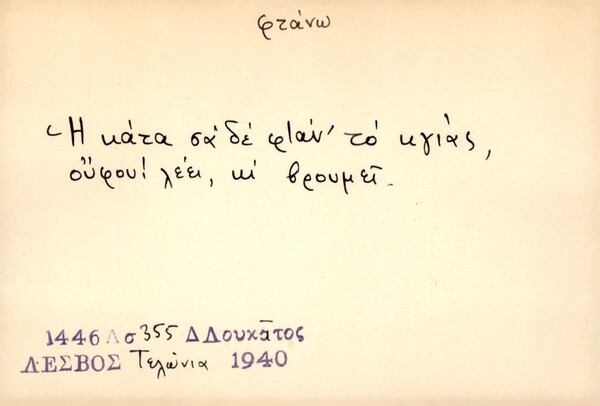 φτάνω
Ἡ κάτα σὰ δέ φτάν' τό κγιάς,
οὔφου! λέει, κι βρουμεῖ.
1446 Λ σ 355 Δ Λουκᾶτος
ΛΕΣΒΟΣ Τελώνια 1940